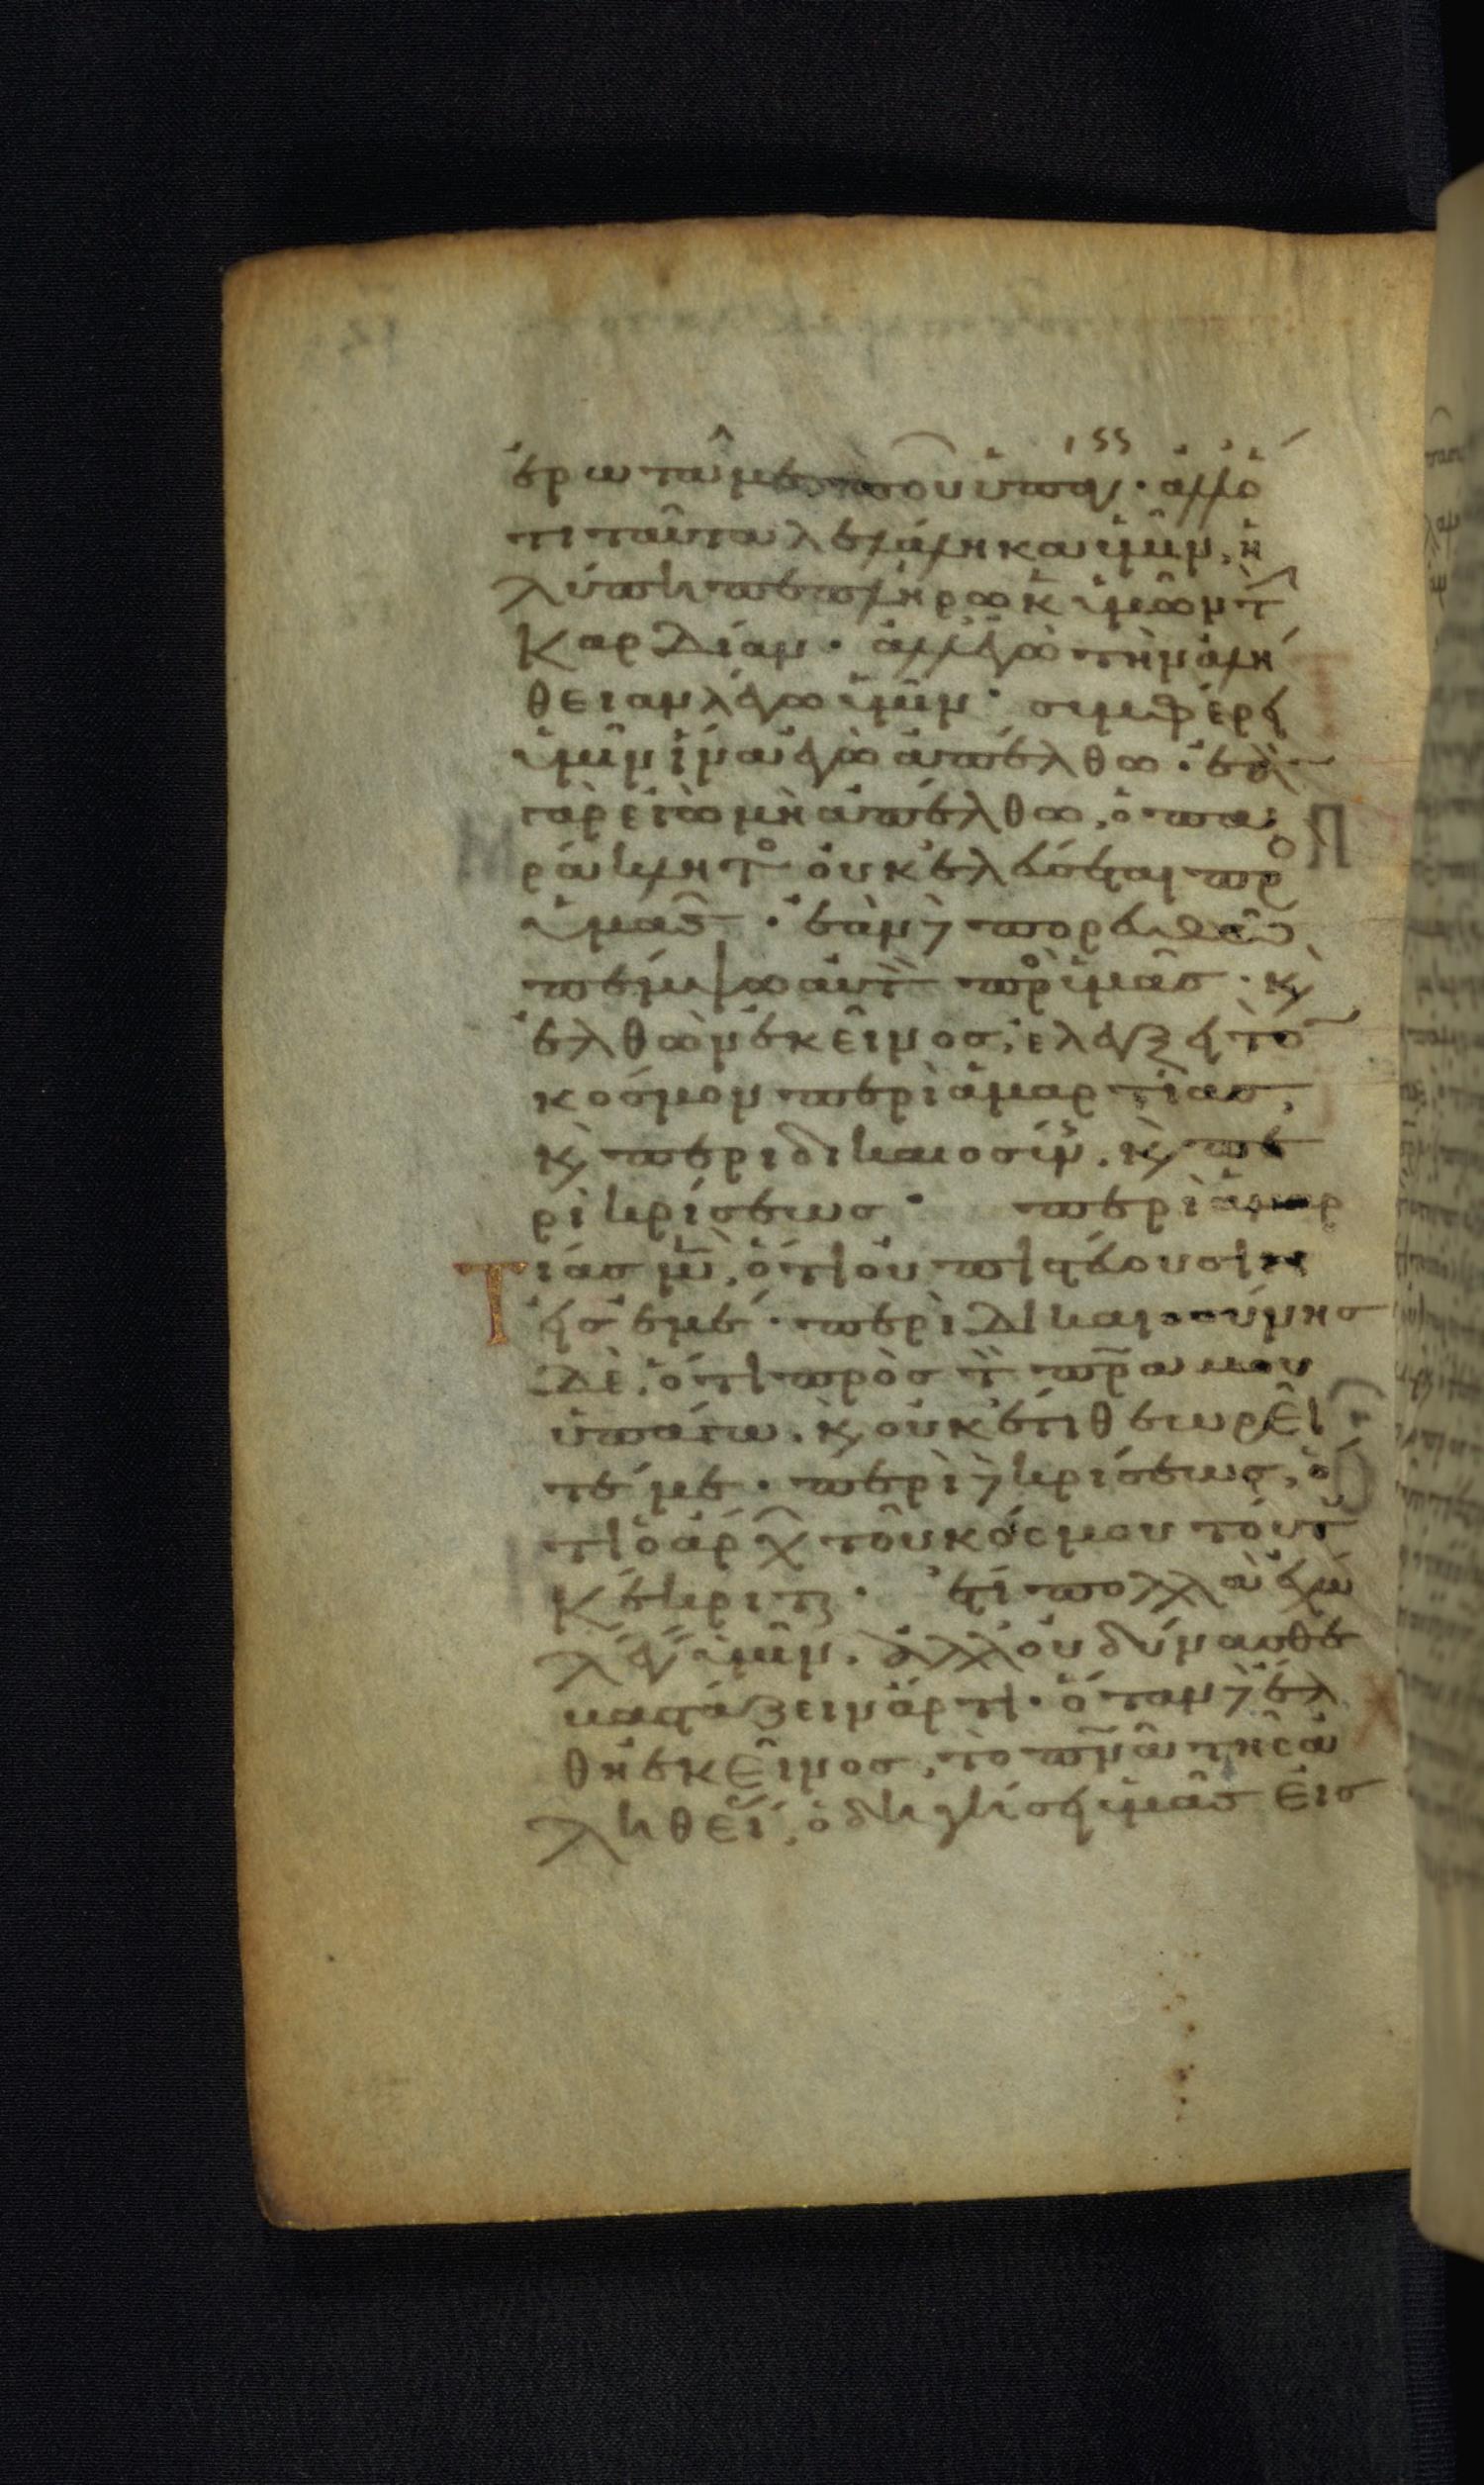 ἐρωτᾶ με ποῦ ὑπάγεις · ἀλλ ὅ
τι ταῦτα λελάληκα ὑμῖν, ἡ
λύπη πεπλήρωκ ὑμῶν τὴν
καρδίαν · ἀλλ ἐγὼ τὴν ἀλή
θειαν λέγω ὑμῖν · συμφέρει
ὑμῖν ἵνα ἐγὼ ἀπέλθω · ἐὰν
γὰρ ἐγὼ μὴ ἀπέλθω, ὁ πα
ράκλητος οὐκ ἐλεύσεται πρὸς
ὑμᾶς · ἐὰν δὲ πορευθῶ
πέμψω αὐτὸν πρὸς ὑμᾶς · κ
ἐλθὼν ἐκεῖνος, ἐλέγξει τὸν
κόσμον περὶ ἁμαρτίας,
κ περι δικαιοσύνης, κ πε
ρὶ κρίσεως · περὶ ἁμαρ
τίας μὲν, ὅτι οὐ πιστεύουσιν
εἰς ἐμέ · περὶ δικαιοσύνης
δὲ, ὅτι πρὸς τὸν πρα μου
ὑπάγω, κ οὐκ ἔτι θεωρεῖ
τέ με · περὶ δὲ κρίσεως, ὅ
τι ὁ ἄρχων τοῦ κόσμου τούτου
κέκριται · ἔτι πολλὰ ἔχω
λέγειν ὑμῖν, ἀλλ οὐ δύνασθε
βαστάζειν ἄρτι · ὅταν δὲ ἔλ
θῃ ἐκεῖνος, τὸ πνα τῆς ἀ
ληθείας, ὁδηγήσει ὑμᾶς εἰς